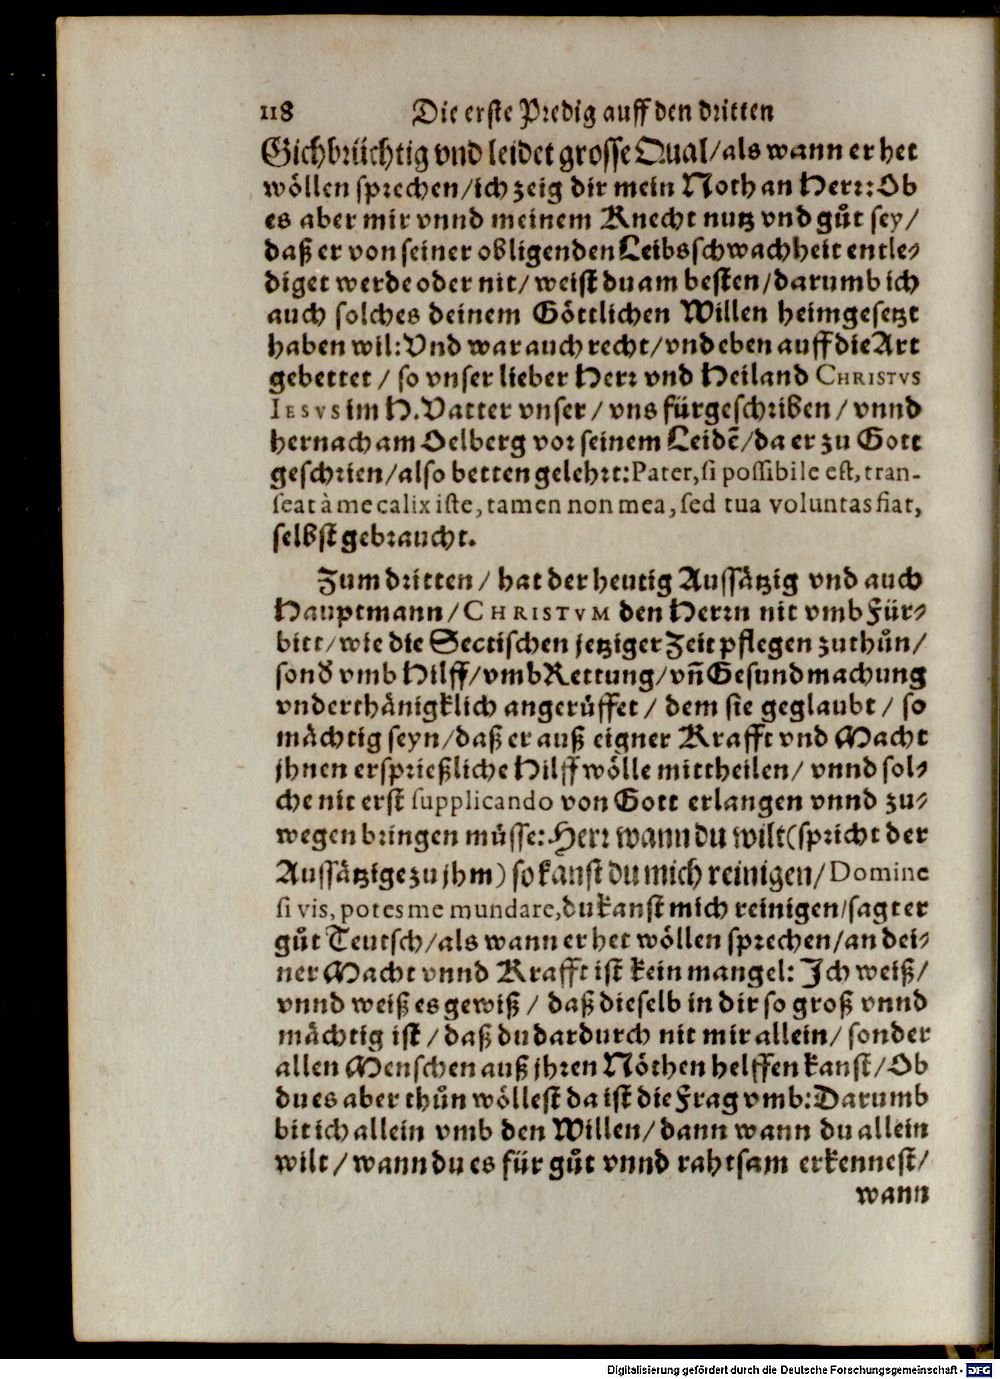 118 Die erste Predig auff den dritten
Gichbrüchtig vnd leidet grosse Qual/als wann er het
wöllen sprechen/ich zeig dir mein Noth an Herr: Ob
es aber mir vnnd meinem Knecht nutz vnd gůt sey/
daß er von seiner obligenden Leibsschwachheit entle⸗
diget werde oder nit/weist du am besten/darumb ich
auch solches deinem Göttlichen Willen heimgesetzt
haben wil: Vnd war auch recht/vnd eben auff die Art
gebettet / so vnser lieber Herr vnd Heiland CHRISTVS
IESVS im H. Vatter vnser / vns fürgeschriben / vnnd
hernach am Oelberg vor seinem Leidē/da er zu Gott
geschrien/also betten gelehrt: Pater, si possibile est, tran-
seat à me calix iste, tamen non mea, sed tua voluntas fiat,
selbst gebraucht.
Zum dritten / hat der heutig Aussätzig vnd auch
Hauptmann/CHRISTVM den Herrn nit vmb Für⸗
bitt/wie die Sectischen jetziger Zeit pflegen zuthůn/
sonď vmb Hilff/vmb Rettung/vñ Gesundmachung
vnderthänigklich angerůffet / dem sie geglaubt / so
mächtig seyn/daß er auß eigner Krafft vnd Macht
jhnen ersprießliche Hilff wölle mittheilen/ vnnd sol⸗
che nit erst supplicando von Gott erlangen vnnd zu⸗
wegen bringen müsse: Herr wann du wilt (spricht der
Aussätzige zu jhm) so kanst du mich reinigen/Domine
si vis, potes me mundare, du kanst mich reinigen/sagt er
gůt Teutsch/als wann er het wöllen sprechen/an dei⸗
ner Macht vnnd Krafft ist kein mangel: Ich weiß/
vnnd weiß es gewiß / daß dieselb in dir so groß vnnd
mächtig ist / daß du dardurch nit mir allein/ sonder
allen Menschen auß jhren Nöthen helffen kanst/Ob
du es aber thůn wöllest da ist die Frag vmb: Darumb
bit ich allein vmb den Willen/dann wann du allein
wilt / wann du es für gůt vnnd rahtsam erkennest/
wann
Digitalisierung gefördert durch die Deutsche Forschungsgemeinschaft - DFG